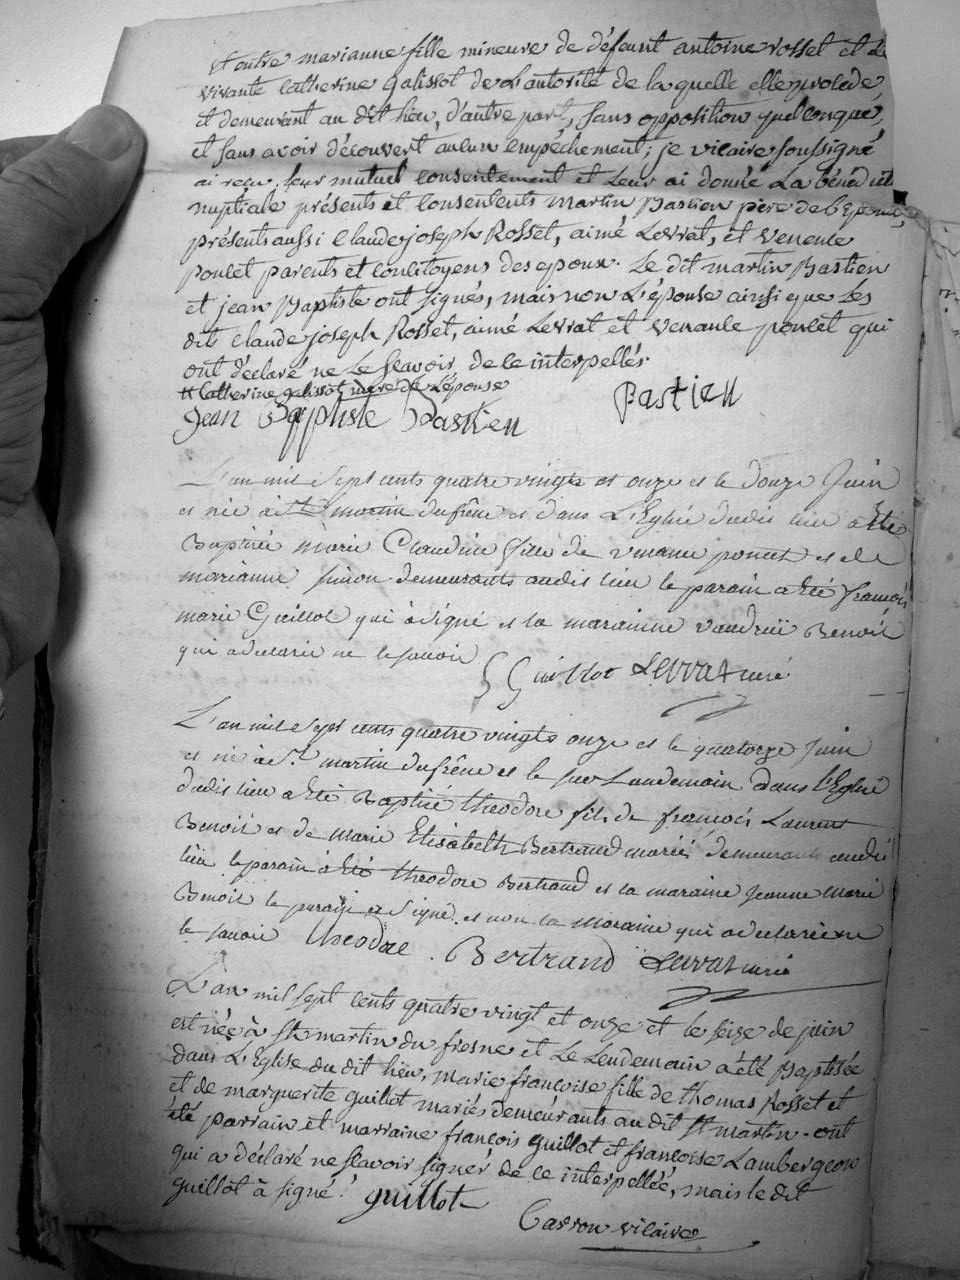 et outre marianne fille mineure de défeunt antoine rosset et
vivante Catherine galissot de l'autorité de laquelle elle procède
et demeurant au dit lieu, d'autre part, sans opposition quelconque,
et sans avoir découvert aucun empéchement; je vicaire soussigné
ai reçu leur mutuel consentement et leur ai donné La bénédict
nuptiale présents et consentents martin Bastien père de l'Epoux,
présents aussi Claude joseph Rosset, aimé Levrat, et venente
poncet parents et concitoyens des epoux. Le dit martin Bastien
et jean Baptiste ont signés, mais non L'épouse ainsi que Les
dits Claude joseph Rosset, aimé Levrat et venante poncet qui
ont déclaré ne le scavoir de ce interpellés.
Catherine galissot mère de L'épouse
Jean Baptiste Bastien Bastien
L'an mil sept cents quatre vingts et onze et le douze Juin
et née à St martin du frêne et dans L'Eglise dudit lieu a été
Baptisée marie Claudine fille de venant poncet et de
marianne simon demeurants audit lieu le parain a été francois
marie Guillot qui à signé et la maraine
qui a déclarée ne le savoir Guillot Levrat curé
L'an mil sept cents quatre vingts onze et le quatorze Juin
et né à St martin du frêne et le Landemain dans l'Eglise
dudit lieu a été Baptisé théodore fils de françois Laurent
Benoit et de marie Elisabeth Bertrand mariés demeurants audit
lieu le parain à été théodore Bertrand et la maraine Jeanne Marie
Benoit le parain a signé et non la Maraine qui a déclarée ne
le savoir théodore Bertrand Levrat curé
L'an mil sept cents quatre vingt et onze et le seize de juin
est née à St martin du fresne et Le Lendemain à été Baptisée
dans L'Eglise du dit lieu, marie françoise fille de thomas Rosset et
et de marguerite guillot mariés demeurants au dit St martin. ont
été parrain et marraine françois guillot et françoise Lambergeon
qui a déclaré ne scavoir signer de ce interpellée, mais le dit
guillot à signé. guillot
Carron vicaire